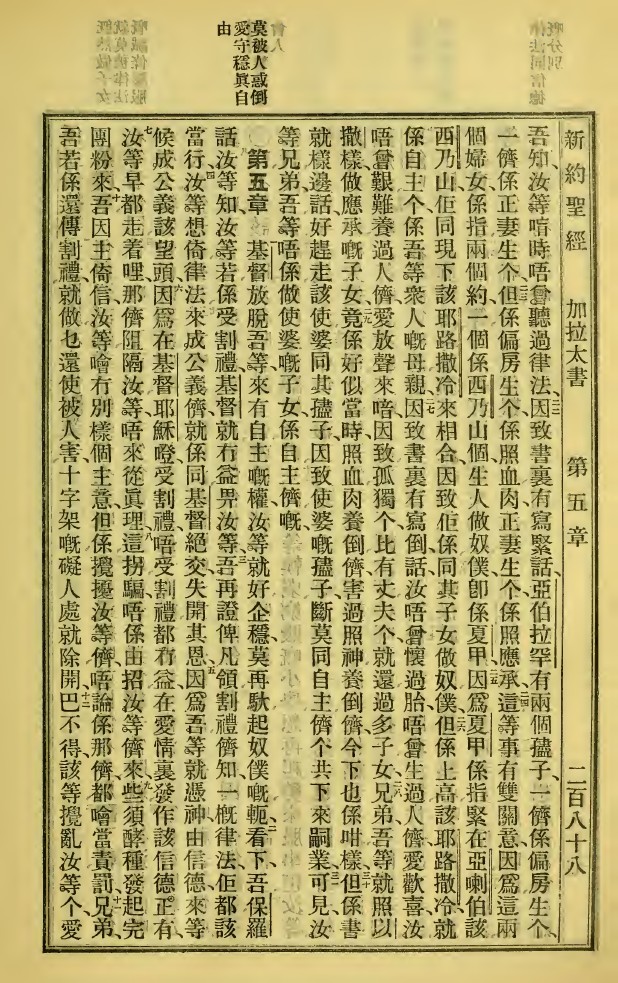 莫被人惑倒
愛守穩眞自
由
新約聖經 加拉太書 第五章 二百八十八
吾知汝等喑時唔曾聽過律法因致書裏有寫緊話亞伯拉罕有兩個孻子一儕係偏房生个
一儕係正妻生个但係偏房生个係照血肉正妻生个係照應承這等事有雙關意因爲這兩
個婦女係指兩個約一個係西乃山個生人做奴僕卽係夏甲因爲夏甲係指緊在亞喇伯該
西乃山佢同現下該耶路撒冷來相合因致佢係同其子女做奴僕但係上高該耶路撒冷就
係自主个係吾等衆人嘅母親因致書裏有寫倒話汝唔曾懷過胎唔曾生過人儕愛歡喜汝
唔曾艱難養過人儕愛放聲來喑因致孤獨个比有丈夫个就還過多子女兄弟吾等就照以
撒樣做應承嘅子女竟係好似當時照血肉養倒儕害過照神養倒儕今下也係咁樣但係書
就樣邊話好趕走該使婆同其孻子因致使婆嘅孻子斷莫同自主儕个共下來嗣業可見汝
等兄弟吾等唔係做使婆嘅子女係自主儕嘅
第五章 基督放脫吾等來有自主嘅權汝等就好企穩莫再馱起奴僕嘅軛看下吾保羅
話汝等知汝等若係受割禮基督就冇益畀汝等吾再證俾凡領割禮儕知一概律法佢都該
當行汝等想倚律法來成公義儕就係同基督絕交失開其恩因爲吾等就憑神由信德來等
候成公義該望頭因爲在基督耶穌噔受割禮唔受割禮都冇益在愛情裏發作該信德正有
汝等早都走着哩那儕阻隔汝等唔來從眞理這拐騙唔係由招汝等儕來些須酵種發起完
團粉來吾因主倚信汝等噲冇別樣個主意但係攪擾汝等儕唔論係那儕都噲當責罰兄弟
吾若係還傳割禮就做乜還使被人害十字架嘅礙人處就除開巴不得該等攪亂汝等个愛